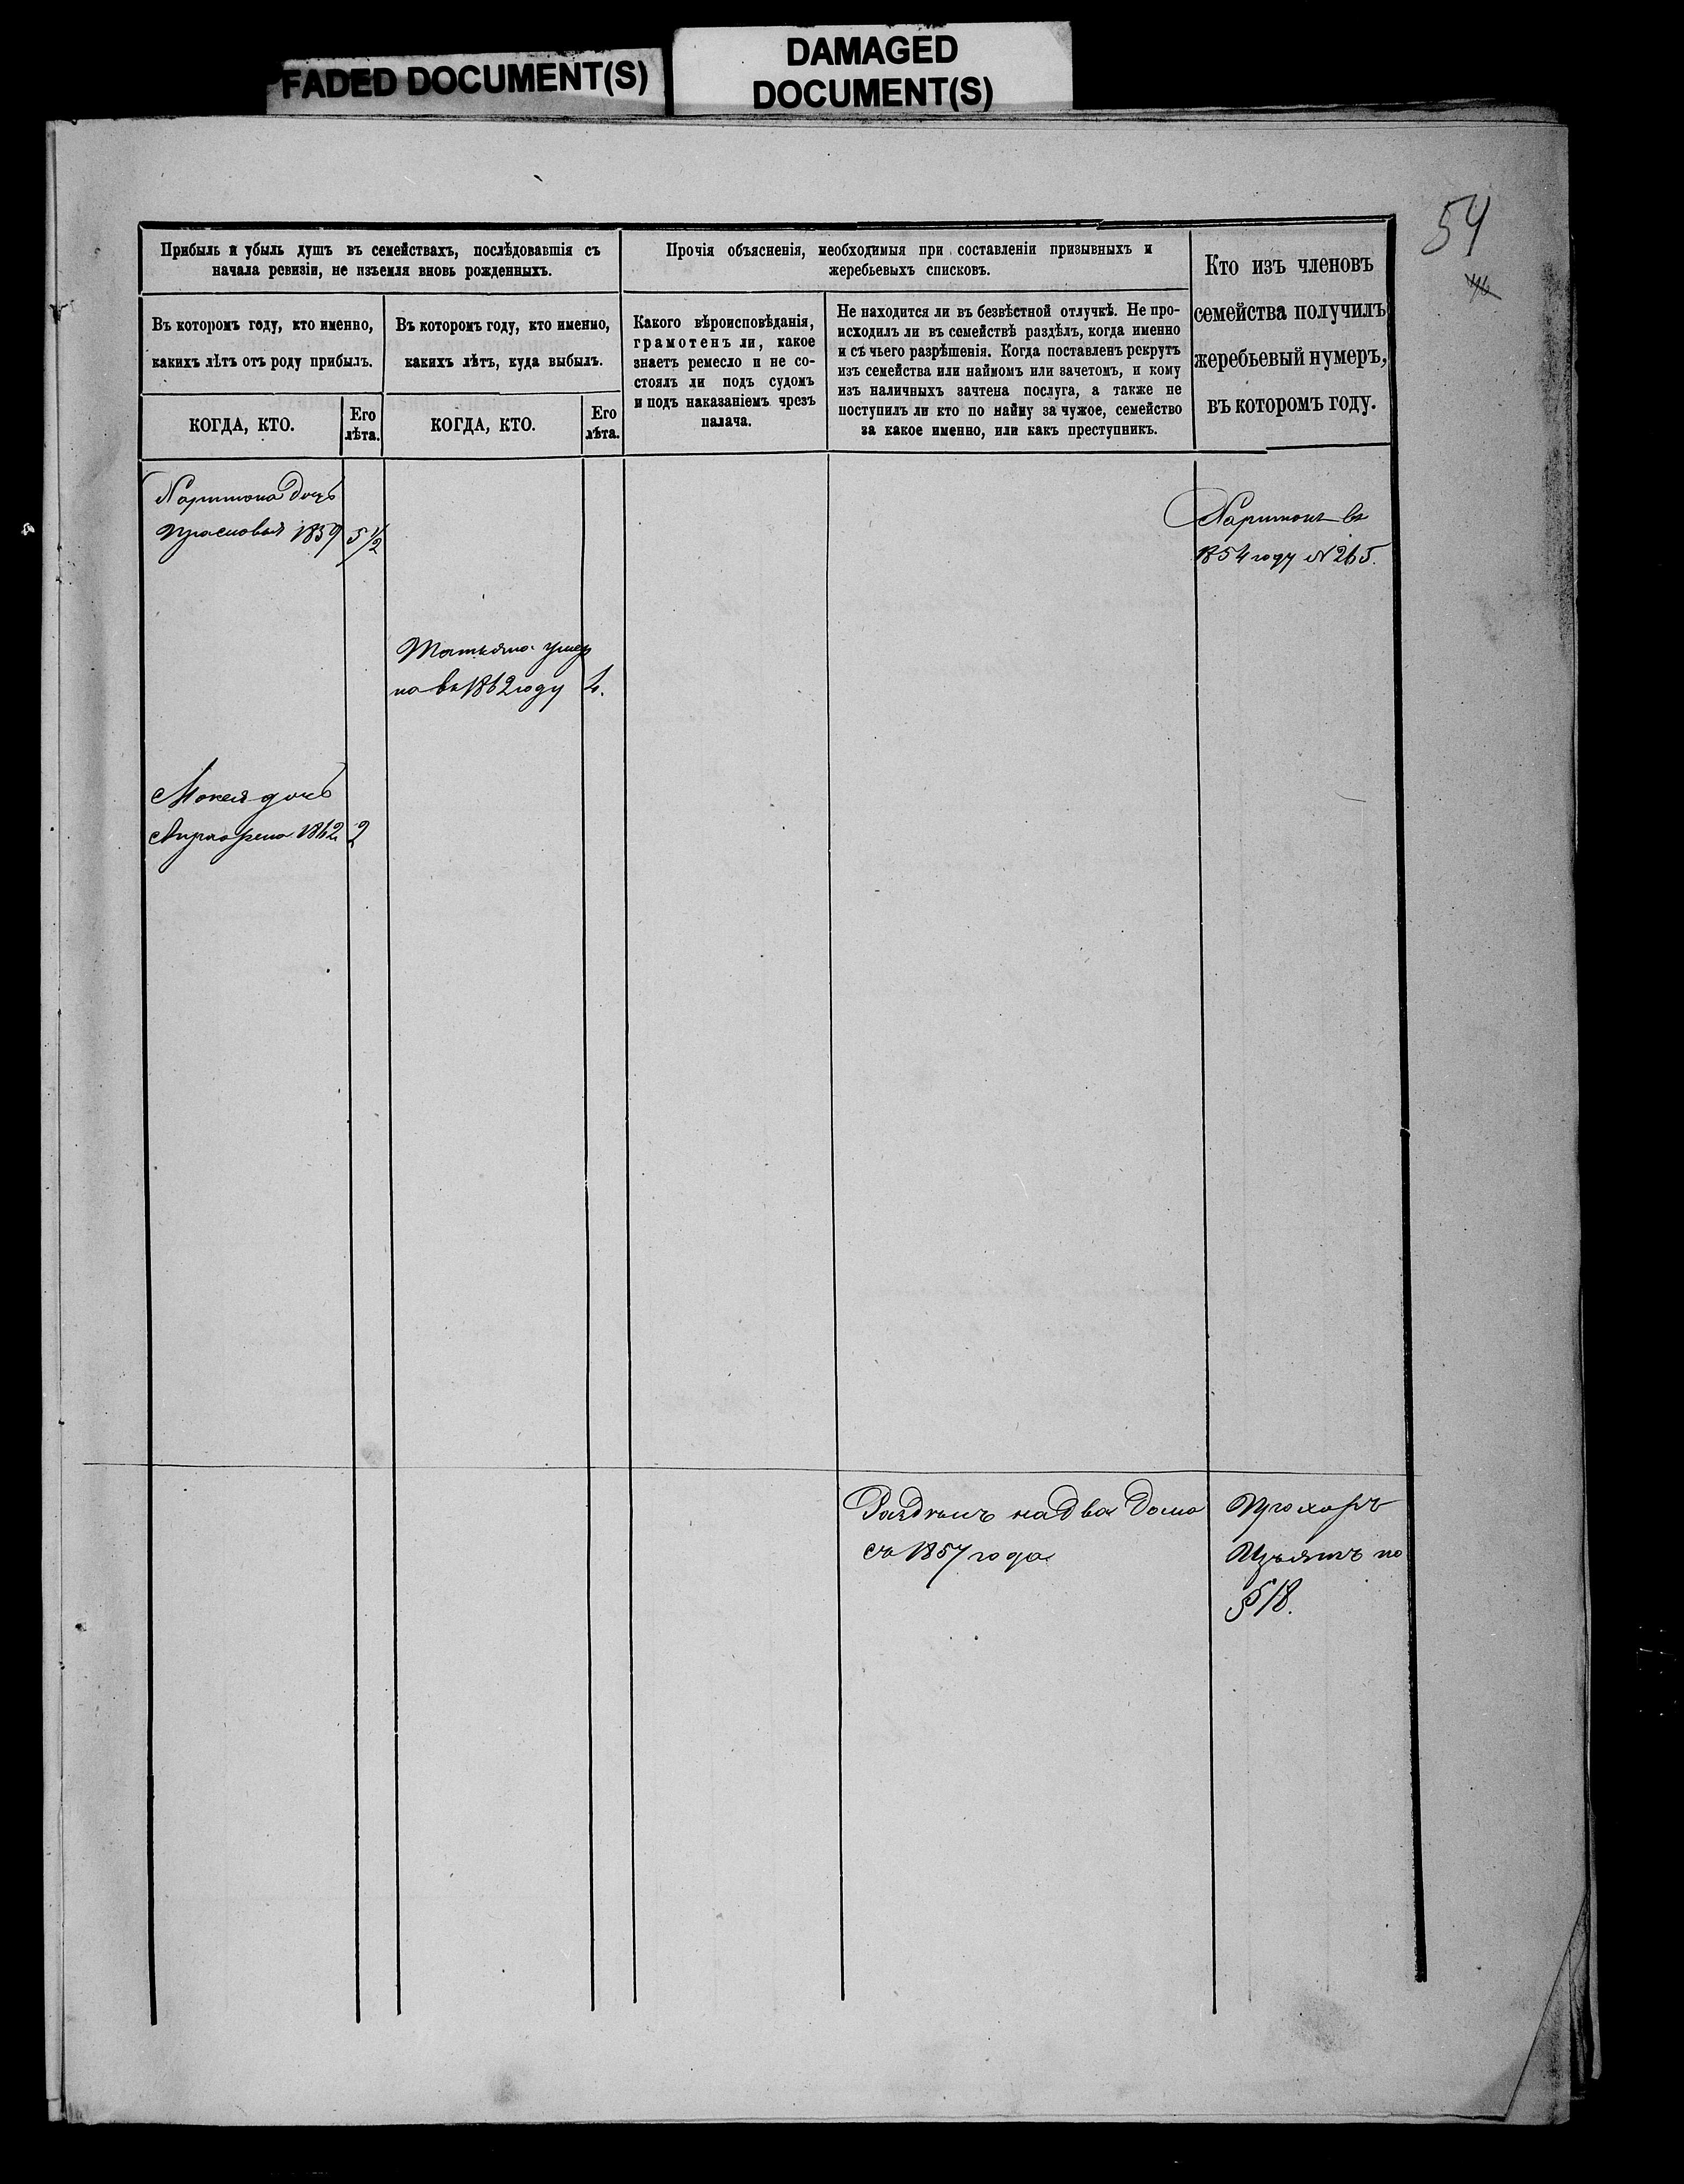 FADED DOCUMENT(S)
DAMAGED
DOCUMENT(S)
54
Прибыль и убыль душъ въ семействахъ, послѣдовавшія съ
начала ревизіи, не изъемля вновь рожденныхъ.
Въ которомъ году, кто именно,
какихъ лѣтъ отъ роду прибылъ.
КОГДА, КТО.
Его
лѣта.
Въ которомъ году, кто именно,
какихъ лѣтъ, куда выбылъ.
КОГДА, КТО.
Его
лѣта.
Прочія объясненія, необходимыя при составленіи призывныхъ и
жеребьевыхъ списковъ.
Какого вѣроисповѣданія,
грамотенъ ли, какое
знаетъ ремесло и не со-
стоялъ ли подъ судомъ
и подъ наказаніемъ чрезъ
палача.
Не находится ли въ безвѣстной отлучкѣ. Не про-
исходилъ ли въ семействѣ раздѣлъ, когда именно
и съ чьего разрѣшенія. Когда поставленъ рекрутъ
изъ семейства или наймомъ или зачетомъ, и кому
изъ наличныхъ зачтена послуга, а также не
поступилъ ли кто по найму за чужое, семейство
за какое именно, или какъ преступникъ.
Кто изъ членовъ
семейства получилъ
жеребьевый нумеръ,
въ которомъ году.
Харитона дочь
Прасковья 1859 5 1/2
Харитонъ въ
1854 году №265.
Татьяна умер
ла въ 1862 году 4.
Мокея дочь
1862 2
на два дома
съ 1857 года
Прохоръ
Изъятъ по
§ 18.